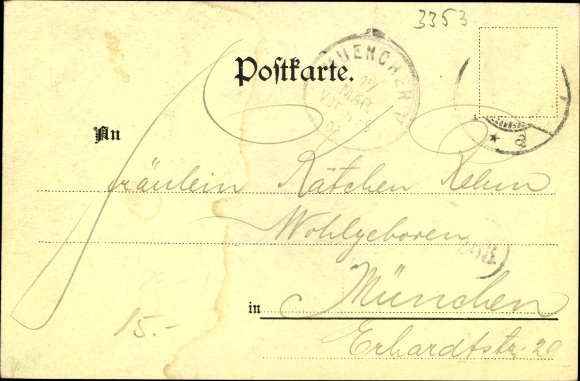 3353
Postkarte.
MUENCHEN
17
MAR
An
Fräulein Kätchen Rehm
Wohlgeboren
in München
Erhardtstr. 20
15.-